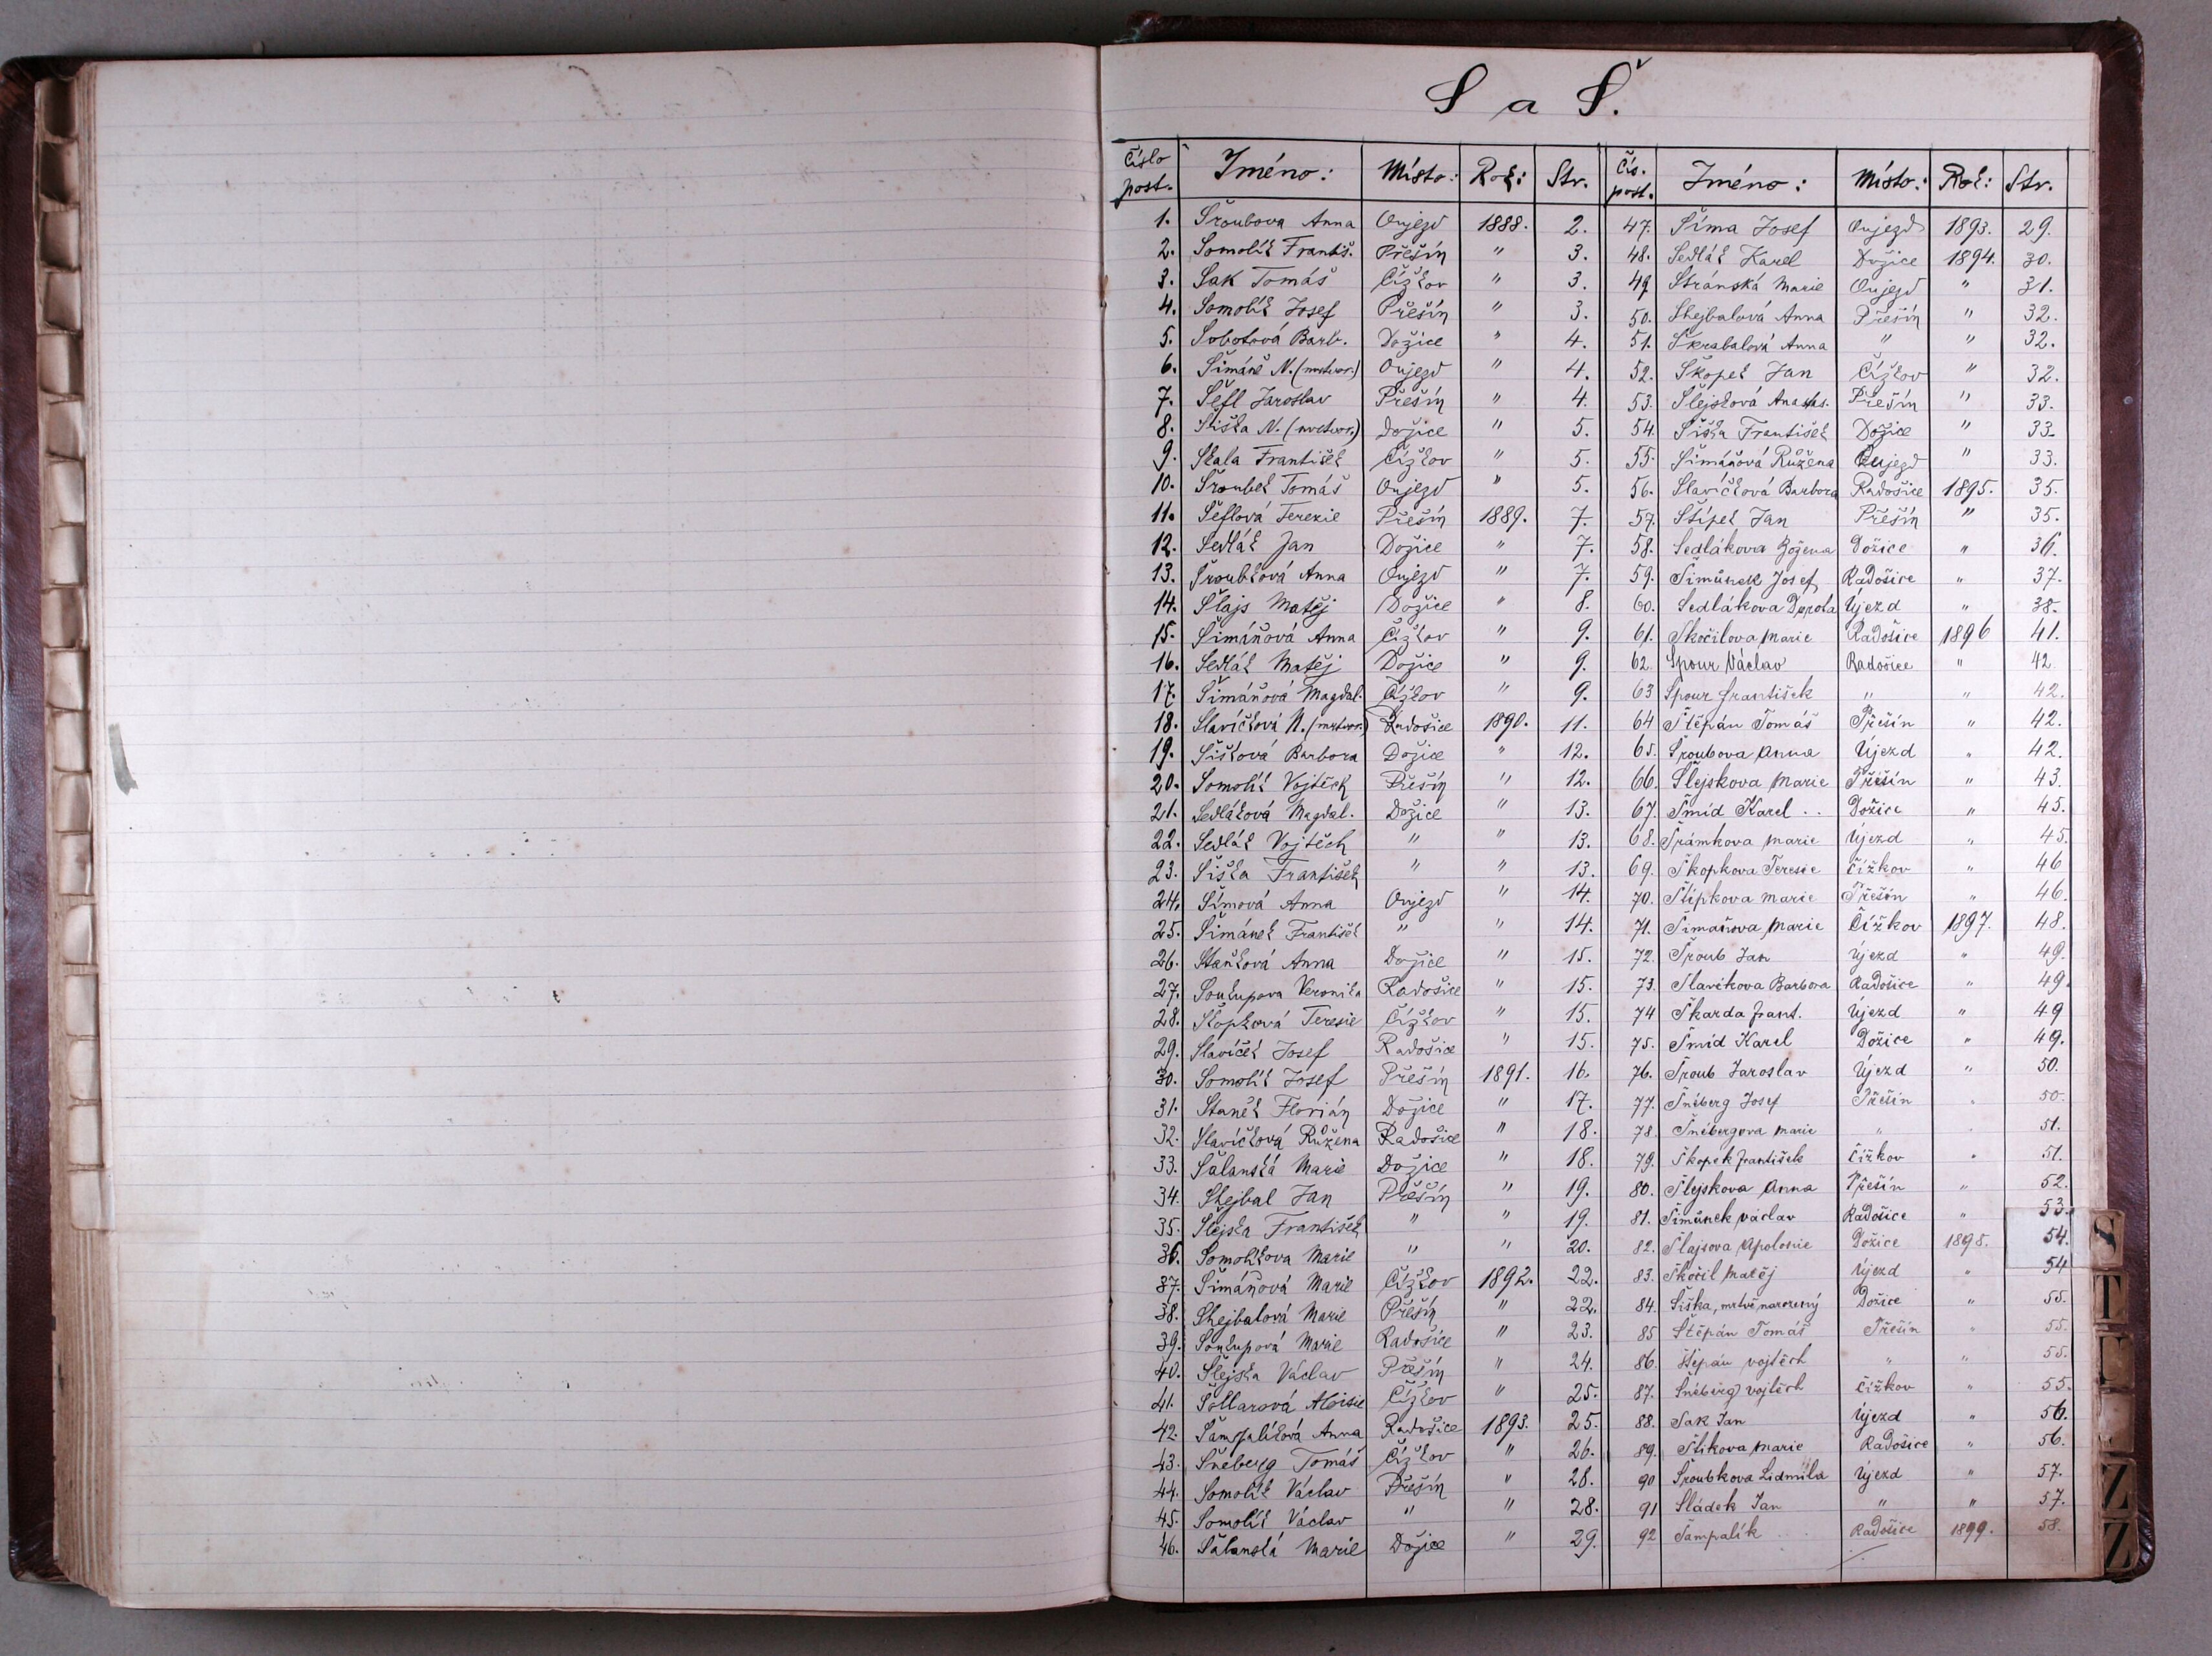 S a Š.
Číslo post. Jméno: Místo: Rok: Str.
1. Šroubova Anna Oujezd 1888. 2.
2. Somolík Františ. Přešín " 3.
3. Sak Tomáš Čížkov " 3.
4. Somolík Josef Přešín " 3.
5. Sobotová Barb. Dožice " 4.
6. Šimáně N. (mrtvor.) Oujezd " 4.
7. Šefl Jaroslav Přešín " 4.
8. Šiška N. (mrtvor.) Dožice " 5.
9. Skala František Čížkov " 5.
10. Šroubek Tomáš Oujezd " 5.
11. Šeflová Terezie Přešín 1889. 7.
12. Sedlák Jan Dožice " 7.
13. Šroubková Anna Oujezd " 7.
14. Šlajs Matěj Dožice " 8.
15. Šimáňová Anna Čížkov " 9.
16. Sedlák Matěj Dožice " 9.
17. Šimáňová Magdal. Čížkov " 9.
18. Slavíčková N. (mrtvor.) Radošice 1890. 11.
19. Šišková Barbora Dožice " 12.
20. Somolík Vojtěch Přešín " 12.
21. Sedláková Magdal. Dožice " 13.
22. Sedlák Vojtěch " " 13.
23. Šiška František " " 13.
24. Šímová Anna Oujezd " 14.
25. Šimánek František " " 14.
26. Staňková Anna Dožice " 15.
27. Soukupova Veronika Radošice " 15.
28. Škopková Teresie Čížkov " 15.
29. Slavíček Josef Radošice " 15.
30. Somolík Josef Přešín 1891. 16.
31. Staněk Florián Dožice " 17.
32. Slavíčková Růžena Radošice " 18.
33. Šalanská Marie Dožice " 18.
34. Shejbal Jan Přešín " 19.
35. Šlejska František " " 19.
36. Somolíkova Marie " " 20.
37. Šimáňová Marie Čížkov 1892. 22.
38. Shejbalová Marie Přešín " 22.
39. Soukupová Marie Radošice " 23.
40. Šlejska Václav Přešín " 24.
41. Šollarová Aloisie Čížkov " 25.
42. Šampalíková Anna Radošice 1893. 25.
43. Šneberg Tomáš Čížkov " 26.
44. Somolík Václav Přešín " 28.
45. Somolík Václav " " 28.
46. Šalanská Marie Dožice " 29.
Čís. post. Jméno: Místo: Rok: Str.
47. Šíma Josef Oujezd 1893. 29.
48. Sedlák Karel Dožice 1894. 30.
49 Stránská Marie Oujezd " 31.
50. Shejbalová Anna Přešín " 32.
51. Škrabalová Anna " " 32.
52. Škopek Jan Čížkov " 32.
53. Šlejsková Anastas. Přešín " 33.
54. Šiška František Dožice " 33.
55. Šimáňová Růžena Oujezd " 33.
56. Slavíčková Barbora Radošice 1895. 35.
57. Štípek Jan Přešín " 35.
58. Sedlákova Božena Dožice " 36.
59. Šimůnek Josef Radošice " 37.
60. Sedlákova Dorota Újezd " 38.
61. Skočilova Marie Radošice 1896 41.
62. Spour Václav Radošice " 42.
63 Spour František " " 42.
64 Štěpán Tomáš Přešín " 42.
65. Šroubova Anna Újezd " 42.
66. Šlejskova Marie Přešín " 43.
67. Šmíd Karel .. Dožice " 45.
68. Šrámkova Marie Újezd " 45.
69. Škopkova Teresie Čížkov " 46
70. Štípkova Marie Přešín " 46.
71. Šimáňova Marie Čížkov 1897. 48.
72. Šroub Jan Újezd " 49.
73. Slavíkova Barbora Radošice " 49.
74 Škarda Frant. Újezd " 49
75. Šmíd Karel Dožice " 49.
76. Šroub Jaroslav Újezd " 50.
77. Šnéberg Josef Přešín " 50.
78. Šnébergova Marie " " 51.
79. Škopek František Čížkov " 51.
80. Šlejskova Anna Přešín " 52.
81. Šimůnek Václav Radošice " 53.
82. Šlajsova Apolonie Dožice 1898. 54.
83. Skočil Matěj Újezd " 54
84. Šiška, mrtvě narozený Dožice " 55.
85 Štěpán Tomáš Přešín " 55.
86. Štěpán Vojtěch " " 55.
87. Šnéberg Vojtěch Čížkov " 55.
88. Sak Jan Újezd " 56.
89. Štikova Marie Radošice " 56.
90 Šroubkova Lidmila Újezd " 57.
91 Sládek Jan " " 57.
92 Šampalík Radošice 1899. 58.
S
T
Z
Z